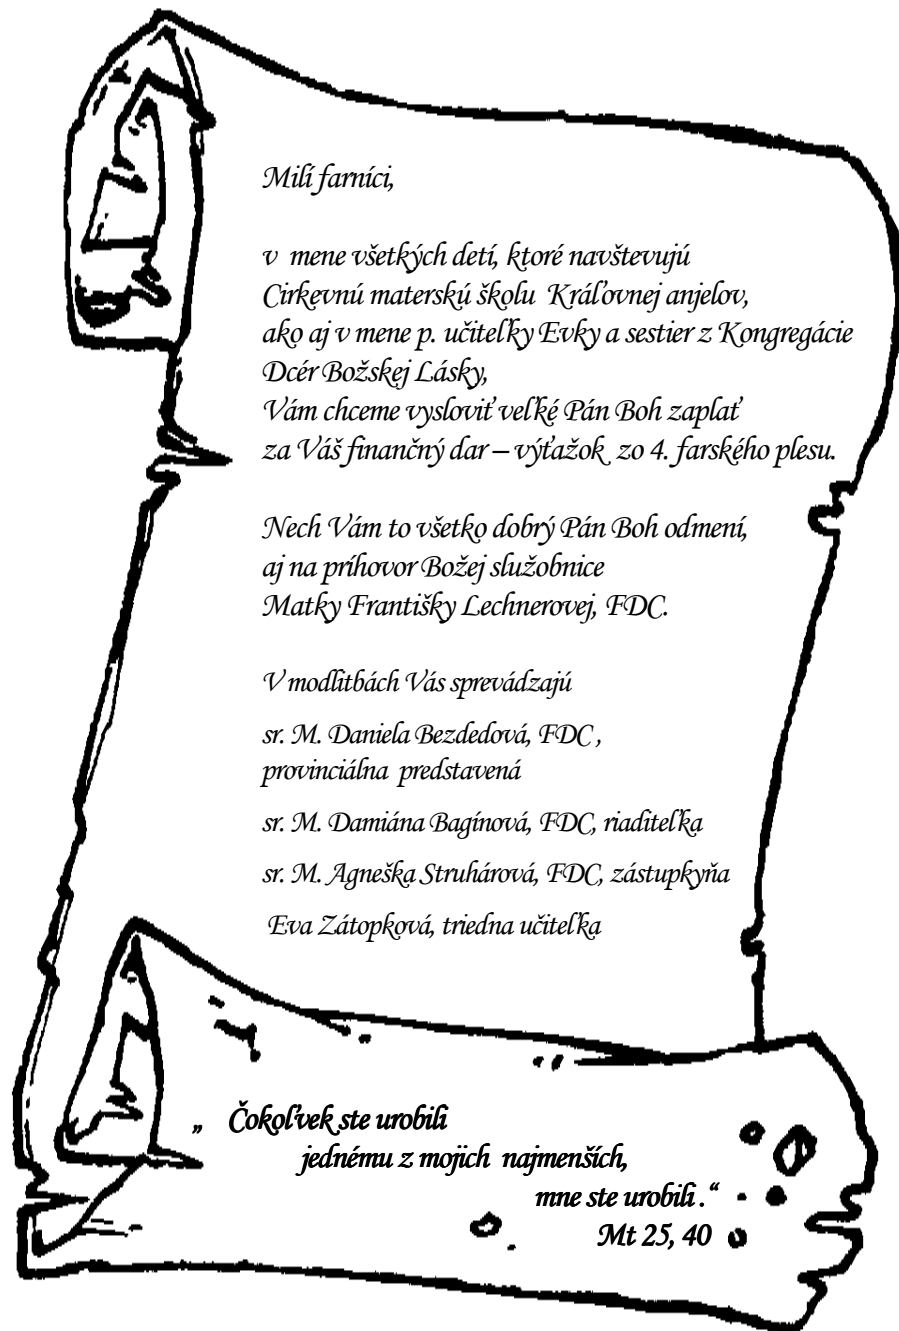 Milí farníci,
v mene všetkých detí, ktoré navštevujú
Cirkevnú materskú školu Kráľovnej anjelov,
ako aj v mene p. učiteľky Evky a sestier z Kongregácie
Dcér Božskej Lásky,
Vám chceme vysloviť veľké Pán Boh zaplať
za Váš finančný dar – výťažok zo 4. farského plesu.
Nech Vám to všetko dobrý Pán Boh odmení,
aj na príhovor Božej služobnice
Matky Františky Lechnerovej, FDC.
V modlitbách Vás sprevádzajú
sr. M. Daniela Bezdedová, FDC ,
provinciálna predstavená
sr. M. Damiána Bagínová, FDC, riaditeľka
sr. M. Agneška Struhárová, FDC, zástupkyňa
Eva Zátopková, triedna učiteľka
„ Čokoľvek ste urobili
jednému z mojich najmenších,
mne ste urobili .“
Mt 25, 40